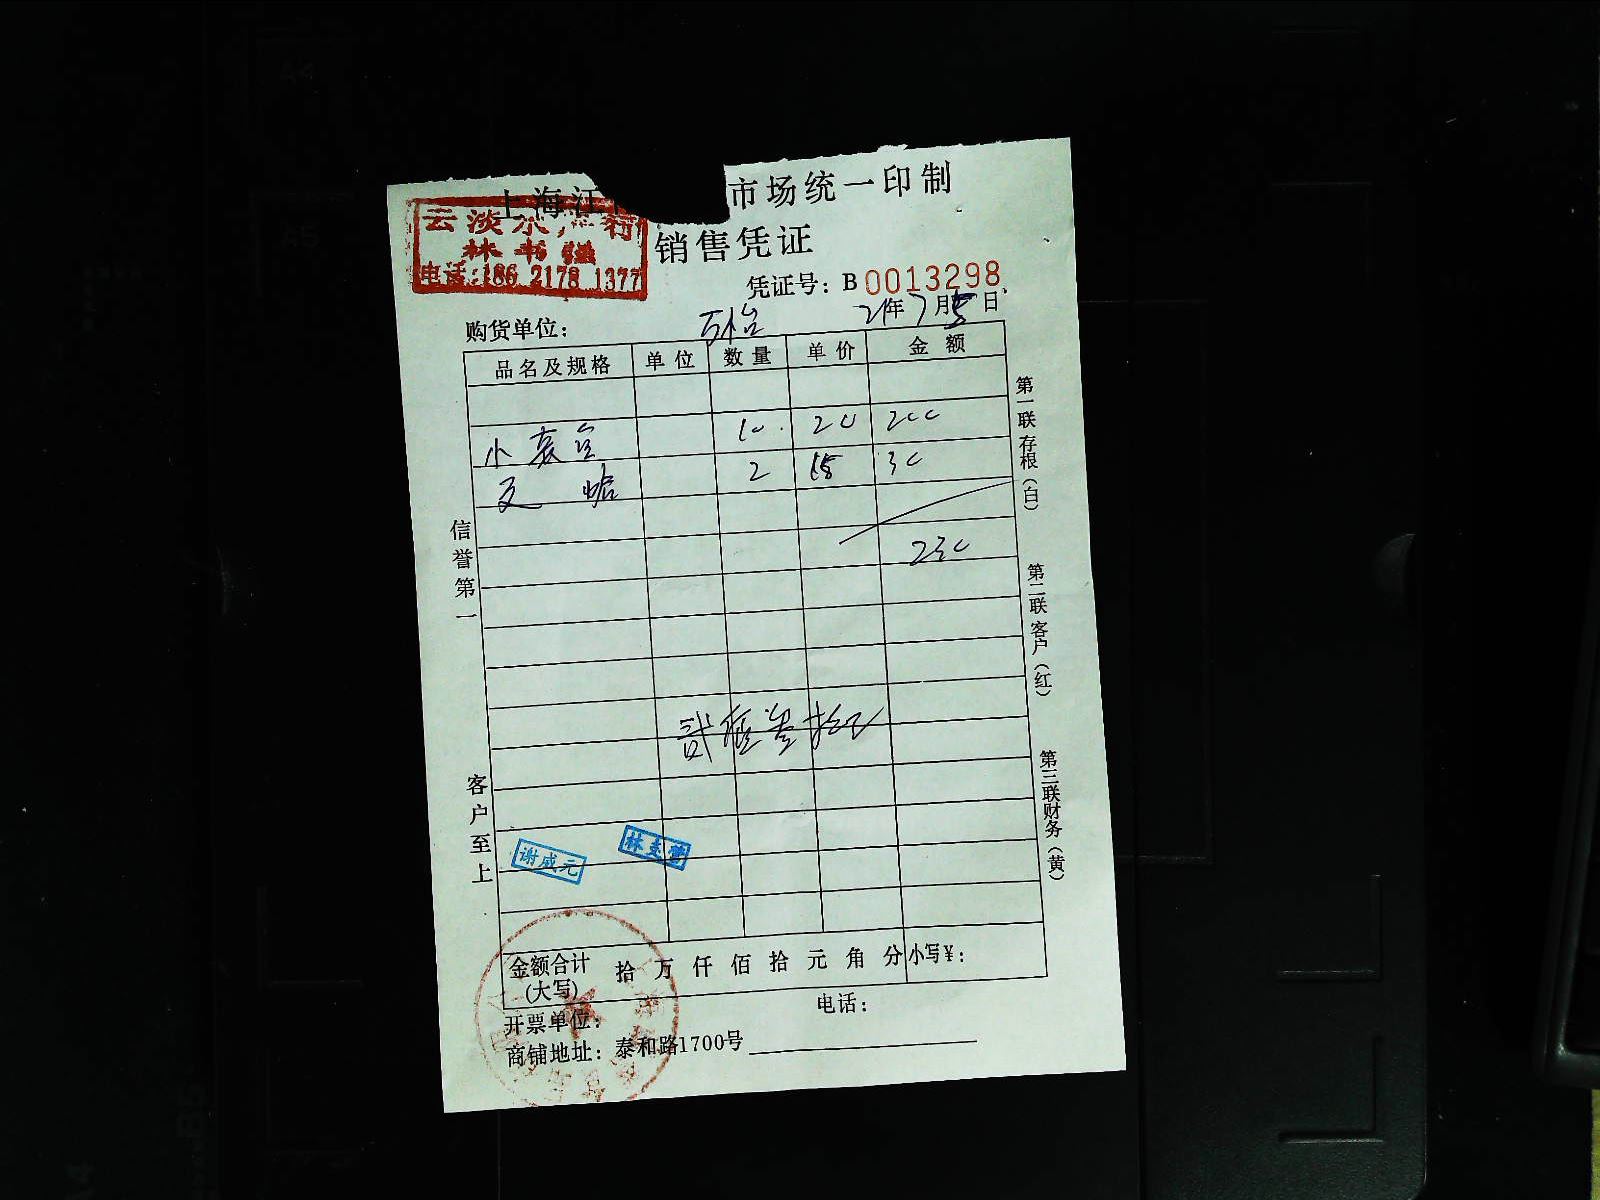 上海江 市场统一印制
云淡水产行
林书强
电话:186 2178 1377
销售凭证
凭证号: B 0013298
21年7月5日
购货单位: 万怡
品名及规格 单位 数量 单价 金额
小 10 20 200
2 15 30
230
贰佰叁拾元
信誉第一
客户至上
第一联存根(白)
第二联客户(红)
第三联财务(黄)
谢威元
林
金额合计(大写) 拾 万 仟 佰 拾 元 角 分 小写¥:
开票单位: 电话:
商铺地址: 泰和路1700号